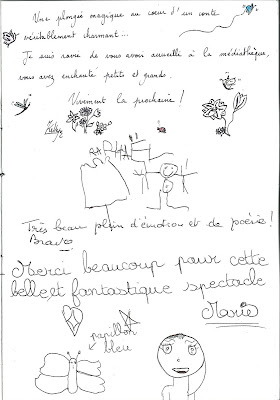 Une plongée magique au coeur d'un conte
véritablement charmant...
Je suis ravie de vous avoir accueilli à la médiathèque,
vous avez enchanté petits et grands.
Vivement la prochaine !
Très beau plein d'émotion et de poésie !
Bravo
Merci beaucoup pour cette
belle et fantastique spectacle
Marie
papillon
bleu